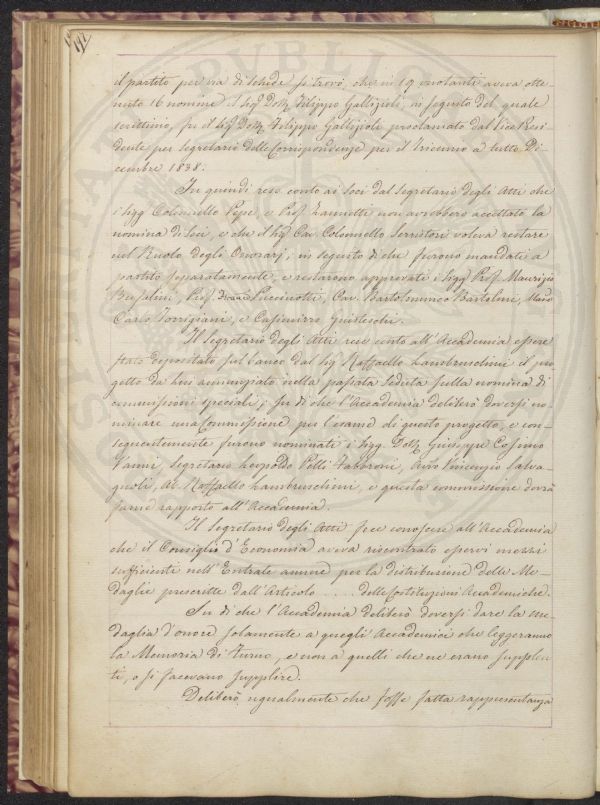 192
il partito per via di schede si trovò, che in 19 votanti aveva otte-
nuto 16 nomine il Sig. Dott. Filippo Gallizioli, in seguito del quale
scrittinio, fu il Sig. Dott. Filippo Gallizioli proclamato dal Vice Presi-
dente per Segretario delle Corrispondenze per il triennio a tutto Di-
cembre 1838.
Fu quindi reso conto ai Soci dal Segretario degli Atti che
i Sigg. Colonnello Pepe, e Prof. Zannetti non avrebbero accettato la
nomina di Soci, e che il Sig. Cav. Colonnello Serristori voleva restare
nel Ruolo degli Onorarj; in seguito di che furono mandati a
partito separatamente, e restarono approvati i Sigg. Prof. Maurizio
Bufalini, Prof. Puccinotti, Cav. Bartolommeo Bartolini,
Carlo Torrigiani, e Casimirro Giusteschi.
Il Segretario degli Atti rese conto all'Accademia essere
stato depositato sul banco dal Sig. Raffaello Lambruschini il pro-
getto da lui annunziato nella passata seduta sulla nomina di
commissioni speciali; su di che l'Accademia deliberò doversi no-
minare una Commissione per l'esame di questo progetto, e con-
seguentemente furono nominati i Sigg. Dott. Giuseppe Cosimo
Vanni, Segretario Leopoldo Pelli Fabbroni, Avv. Vincenzio Salva-
gnoli, Ab. Raffaello Lambruschini, e questa commissione dovrà
farne rapporto all'Accademia.
Il Segretario degli Atti fece conoscere all'Accademia
che il Consiglio d'Economia aveva riscontrato esservi mezzi
sufficienti nell'Entrate annue per la distribuzione delle Me-
daglie prescritte dall'Articolo .... delle Costituzioni Accademiche.
Su di che l'Accademia deliberò doversi dare la me-
daglia d'onore solamente a quegli Accademici che leggeranno
la Memoria di turno, e non a quelli che ne erano supplen-
ti, o si facevano supplire.
Deliberò ugualmente che fosse fatta rappresentanza